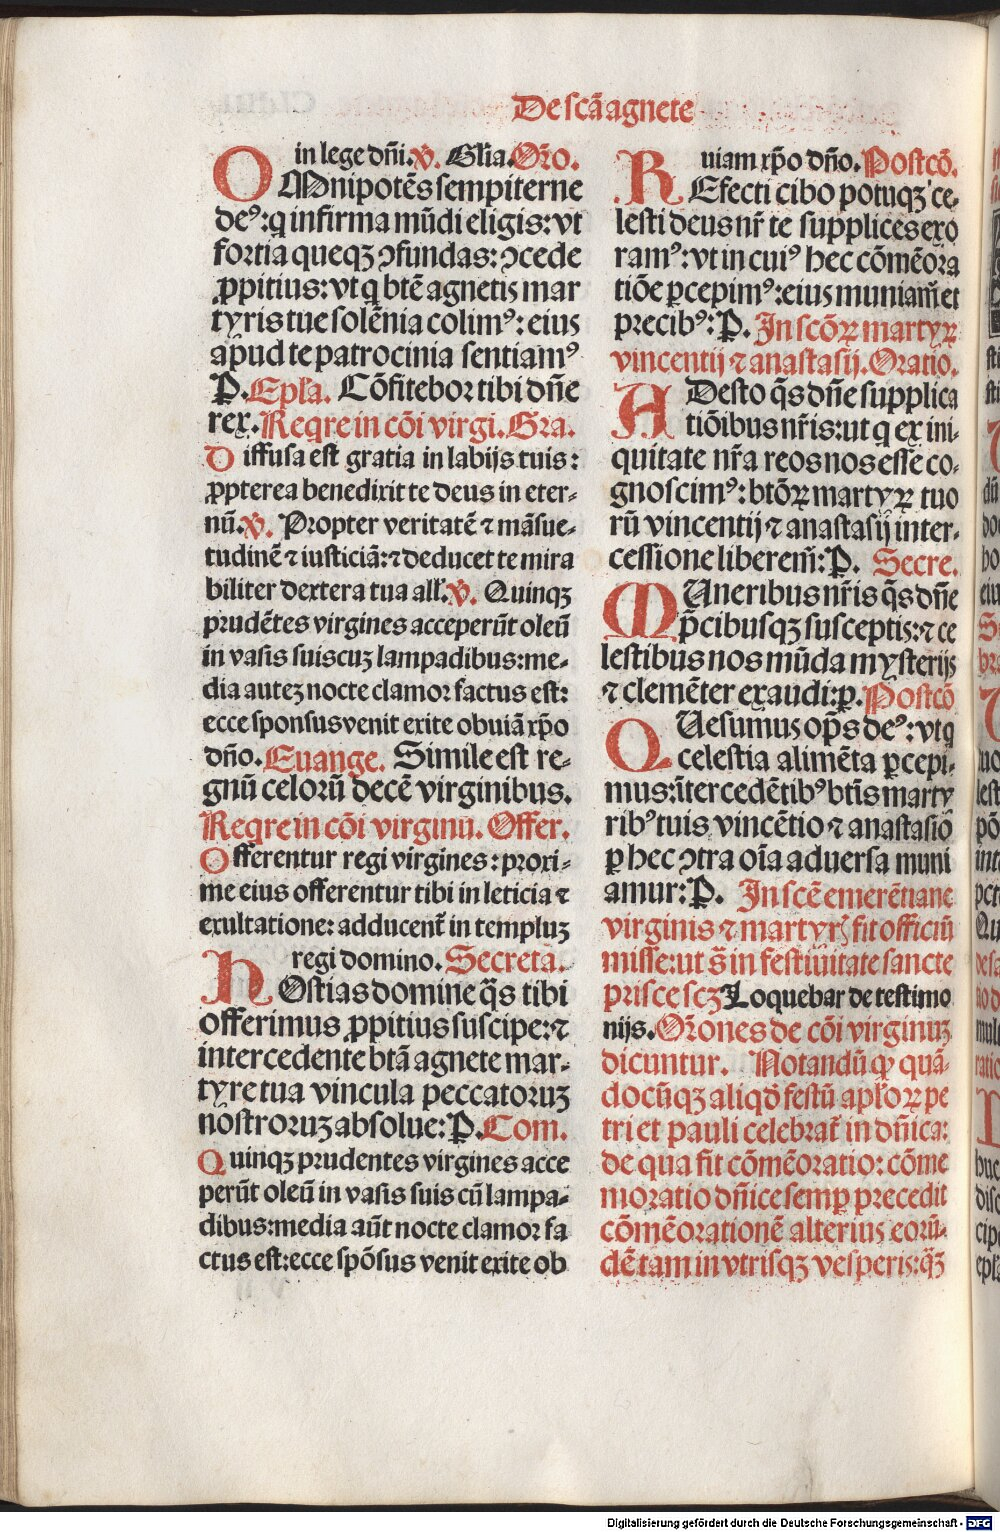 De scā agnete
in lege dn̄i. ℣. Glīa. Or̄o.
OMnipotēs sempiterne
deꝰ: q infirma mūdi eligis: vt
fortia queqꝫ ꝯfundas: ꝯcede
ꝓpitius: vt q btē agnetis mar
tyris tue solēnia colimꝰ: eius
apud te patrocinia sentiamꝰ
P. Epl̄a. Cōfitebor tibi dn̄e
rex. Reqre in cōi virgi. Gra.
Diffusa est gratia in labijs tuis:
ꝓpterea benedixit te deus in eter-
nū. ℣. Propter veritatē ⁊ māsue-
tudinē ⁊ iusticiā: ⁊ deducet te mira
biliter dextera tua all'. ℣. Quinqꝫ
prudētes virgines acceperūt oleū
in vasis suis cuꝫ lampadibus: me-
dia auteꝫ nocte clamor factus est:
ecce sponsus venit exite obuiā xp̄o
dn̄o. Euange. Simile est re-
gnū celorū decē virginibus.
Reqre in cōi virginū. Offer.
Offerentur regi virgines: proxi-
me eius offerentur tibi in leticia ⁊
exultatione: adducent̄ in templuꝫ
regi domino. Secreta.
HOstias domine q̄s tibi
offerimus ꝓpitius suscipe: ⁊
intercedente btā agnete mar-
tyre tua vincula peccatoruꝫ
nostroruꝫ absolue: P. Com.
Quinqꝫ prudentes virgines acce
perūt oleū in vasis suis cū lampa-
dibus: media aūt nocte clamor fa
ctus est: ecce spōsus venit exite ob
uiam xp̄o dn̄o. Postcō.
REfecti cibo potuqꝫ ce-
lesti deus nr̄ te supplices exo
ramꝰ: vt in cuiꝰ hec cōmēora
tiōe ꝑcepimꝰ: eius muniam̄ et
precibꝰ: P. In scōꝝ martyꝝ
vincentij ⁊ anastasij. Oratio.
ADesto q̄s dn̄e supplica
tiōibus nr̄is: ut q ex ini-
quitate nr̄a reos nos esse co-
gnoscimꝰ: btōꝝ martyꝝ tuo
rū vincentij ⁊ anastasij inter-
cessione liberem̄: P. Secre.
MUneribus nr̄is q̄s dn̄e
p̄cibusqꝫ susceptis: ⁊ ce
lestibus nos mūda mysterijs
⁊ clemēter exaudi: p. Postcō
QUesumus op̄s deꝰ: vt q
celestia alimēta ꝑcepi-
mus: ītercedētibꝰ btīs marty
ribꝰ tuis vincētio ⁊ anastasio
ꝑ hec ꝯtra oīa aduersa muni
amur: P. In scē emerētiane
virginis ⁊ martyrꝭ fit officiū
misse: ut s̄ in festiuitate sancte
prisce scꝫ Loquebar de testimo
nijs. Or̄ones de cōi virginuꝫ
dicuntur. Notandū ꝙ quā-
docūqꝫ aliqd̄ festū apl̄oꝝ pe
tri et pauli celebrat̄ in dn̄ica:
de qua fit cōmēoratio: cōme
moratio dn̄ice semꝑ precedit
cōmēorationē alterius eorū-
dē tam in vtrisqꝫ vesperis: q̄ꝫ
Digitalisierung gefördert durch die Deutsche Forschungsgemeinschaft - DFG